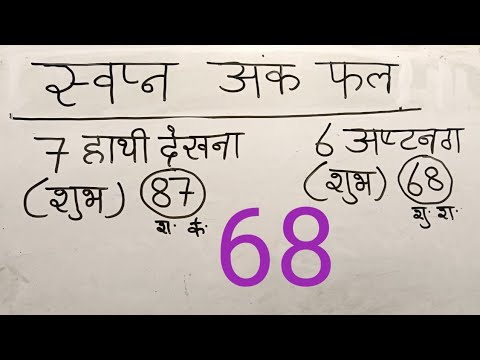 स्वप्न अंक फल
7 हाथी देखना
(शुभ) 87
श. के.
6 अष्टनग
(शुभ) 68
शु. श.
68